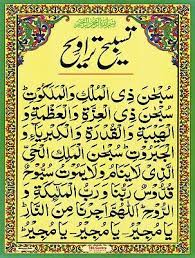 تسبیح تراویح
سُبْحٰنَ ذِی الْمُلْكِ وَالْمَلَكُوْتِ ؕ
سُبْحٰنَ ذِی الْعِزَّةِ وَالْعَظَمَةِ وَ
الْهَيْبَةِ وَالْقُدْرَةِ وَالْكِبْرِيَآءِ وَ
الْجَبَرُوْتِ ؕ سُبْحٰنَ الْمَلِكِ الْحَیِّ
الَّذِیْ لَایَنَامُ وَلَا یَمُوْتُ سُبُّوْحٌ
قُدُّوْسٌ رَبُّنَا وَرَبُّ الْمَلٰٓئِكَةِ وَ
الرُّوْحِ اَللّٰهُمَّ اَجِرْنَا مِنَ النَّارِ
یَا مُجِیْرُ یَا مُجِیْرُ یَا مُجِیْرُ